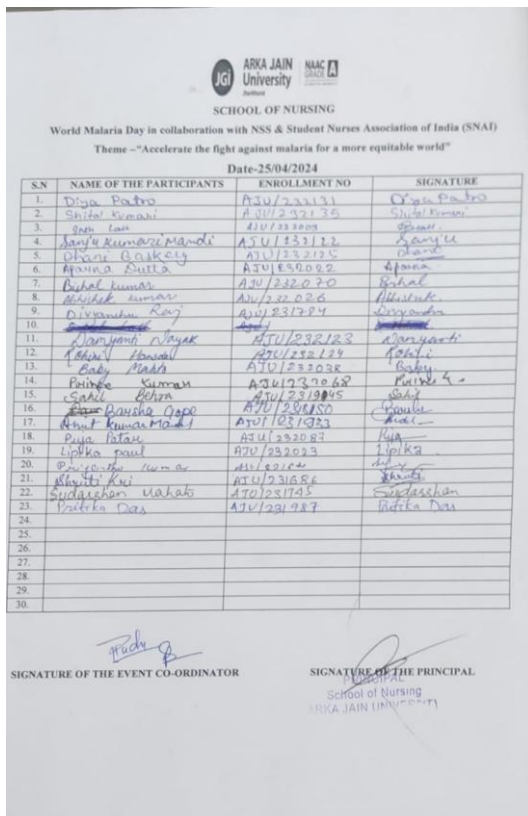 JGI ARKA JAIN University Jharkhand NAAC GRADE A
SCHOOL OF NURSING
World Malaria Day in collaboration with NSS & Student Nurses Association of India (SNAI)
Theme –"Accelerate the fight against malaria for a more equitable world"
Date-25/04/2024
S.N NAME OF THE PARTICIPANTS ENROLLMENT NO SIGNATURE
1. Diya Patro AJU/232131 Diya Patro
2. Shital Kumari AJU/232135 Shital Kumari
3.
4. Sanju Kumari Mandi AJU/232122 Sanju
5. Dhani Baskey AJU/232125 Dhani
6. Aparna Dutta AJU/232022 Aparna
7. Bishal Kumar AJU/232070 Bishal
8. Abhishek Kumar AJU/232026 Abhishek
9. Divyanshu Raj AJU/231784 Divyanshu
10.
11. Nayak AJU/232123
12. Rohini Hansda AJU/232124 Rohini
13. Baby Mahto AJU/232038 Baby
14. Prince Kumar AJU/232068 Prince
15. Sahil Behra Sahil
16. Barsha Gope
17. Kumar
18. Puja Patar AJU/232087 Puja
19. Lipika paul AJU/232023 Lipika
20. Kumar
21. Shriti Kri AJU/231686 Shriti
22. Sudarshan Mahato AJU/231745 Sudarshan
23. Pritika Das AJU/231987 Pritika Das
24.
25.
26.
27.
28.
29.
30.
SIGNATURE OF THE EVENT CO-ORDINATOR SIGNATURE OF THE PRINCIPAL
PRINCIPAL
School of Nursing
ARKA JAIN UNIVERSITY